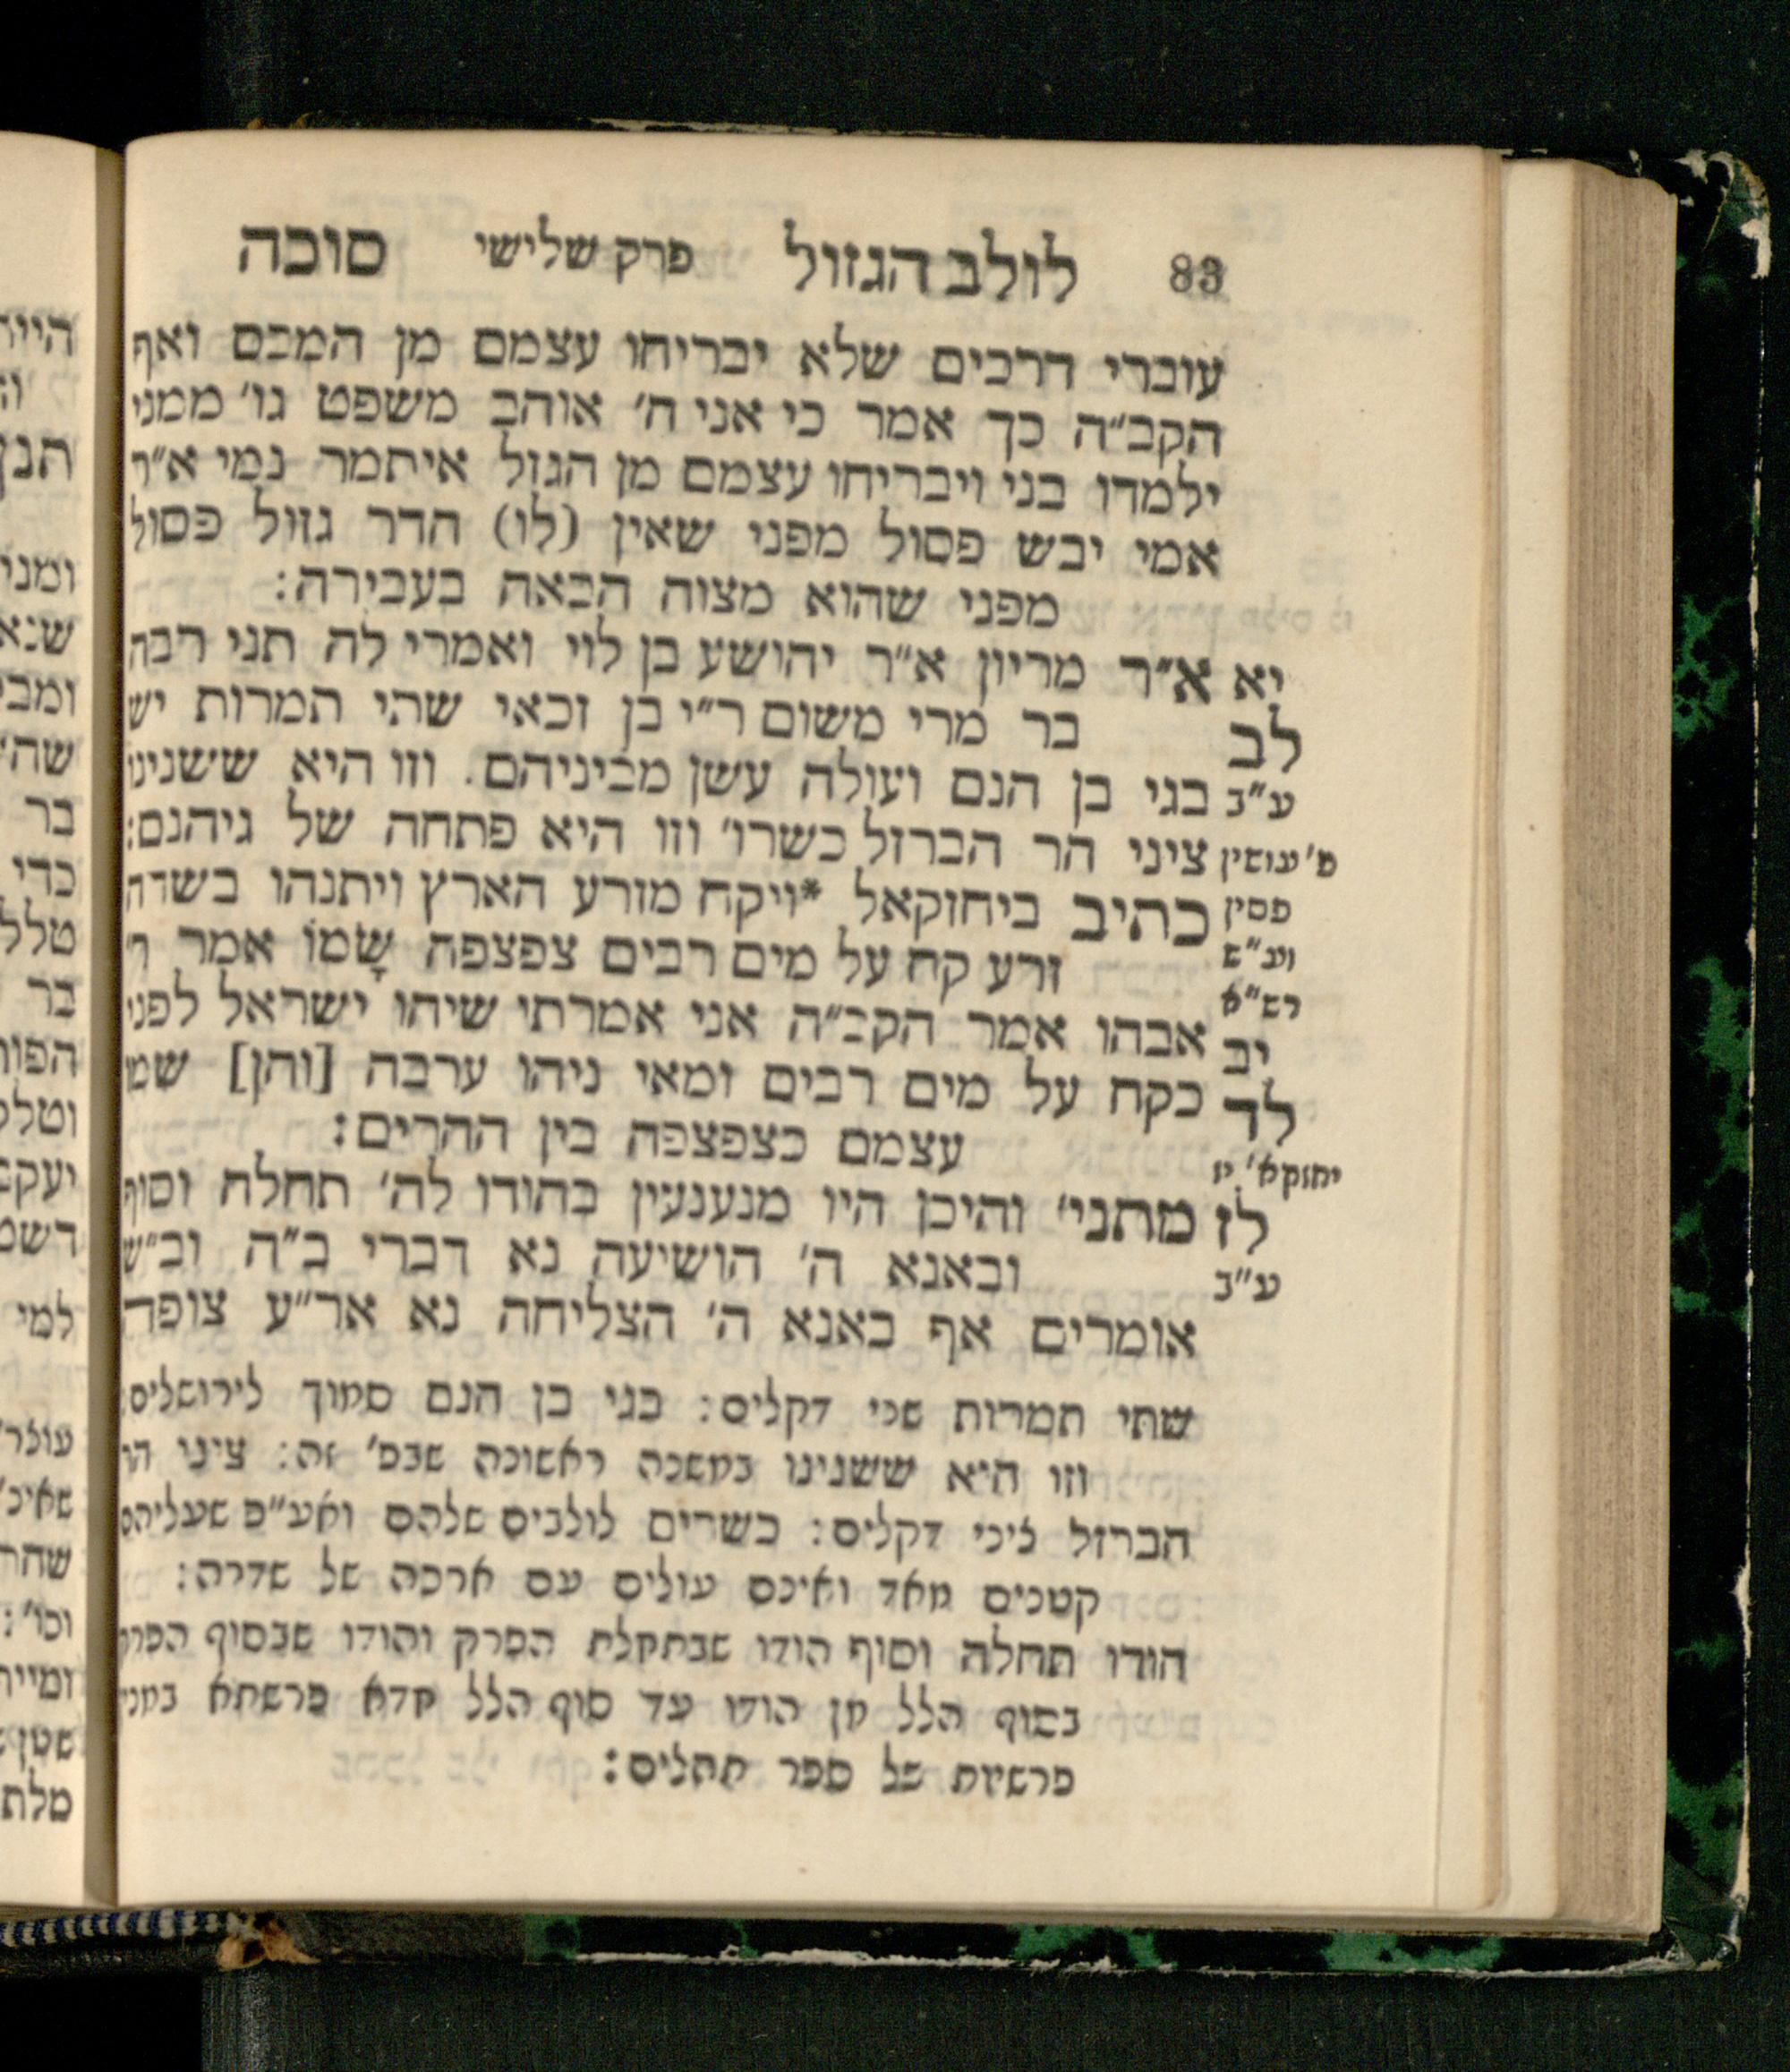 83 לולב הגזול פרק שלישי סוכה
עוברי דרכים שלא יבריחו עצמם מן המכס ואף
הקב״ה כך אמר כי אני ה׳ אוהב משפט גו׳ ממני
ילמדו בני ויבריחו עצמם מן הגזל איתמר נמי א״ר
אמי יבש פסול מפני שאין (לו) הדר גזול פסול
מפני שהוא מצוה הבאה בעבירה:
יא א״ר מריון א״ר יהושע בן לוי ואמרי לה תני רבה
לב בר מרי משום ר״י בן זכאי שתי תמרות יש
ע״ב בגי בן הנם ועולה עשן מביניהם. וזו היא ששנינו
ציני הר הברזל כשרו׳ וזו היא פתחה של גיהנם:
פסין כתיב ביחזקאל *ויקח מזרע הארץ ויתנהו בשדה
זרע קח על מים רבים צפצפה שָׂמוֹ אמר ר׳
רש״א
יב אבהו אמר הקב״ה אני אמרתי שיהו ישראל לפני
לד כקח על מים רבים ומאי ניהו ערבה [והן] שמו
עצמם כצפצפה בין ההרים:
יחזקא׳ יז
לז מתני׳ והיכן היו מנענעין בהודו לה׳ תחלה וסוף
ע״ב ובאנא ה׳ הושיעה נא דברי ב״ה וב״ש
אומרים אף באנא ה׳ הצליחה נא אר״ע צופה
שתי תמרות שני דקלים: בגי בן הנם סמוך לירושלים:
וזו היא ששנינו במשנה ראשונה שבפ׳ זה: ציני הר
הברזל ליני דקלים: כשרים לולבים שלהם ואע״פ שעליהם
קטנים מאד ואינם עולים עם ארכה של שדרה:
הודו תחלה וסוף הודו שבתחלת הפרק והודו שבסוף הפרק
בסוף הלל מן הודו עד סוף הלל חדא פרשתא במנין
פרשיות של ספר תהלים: